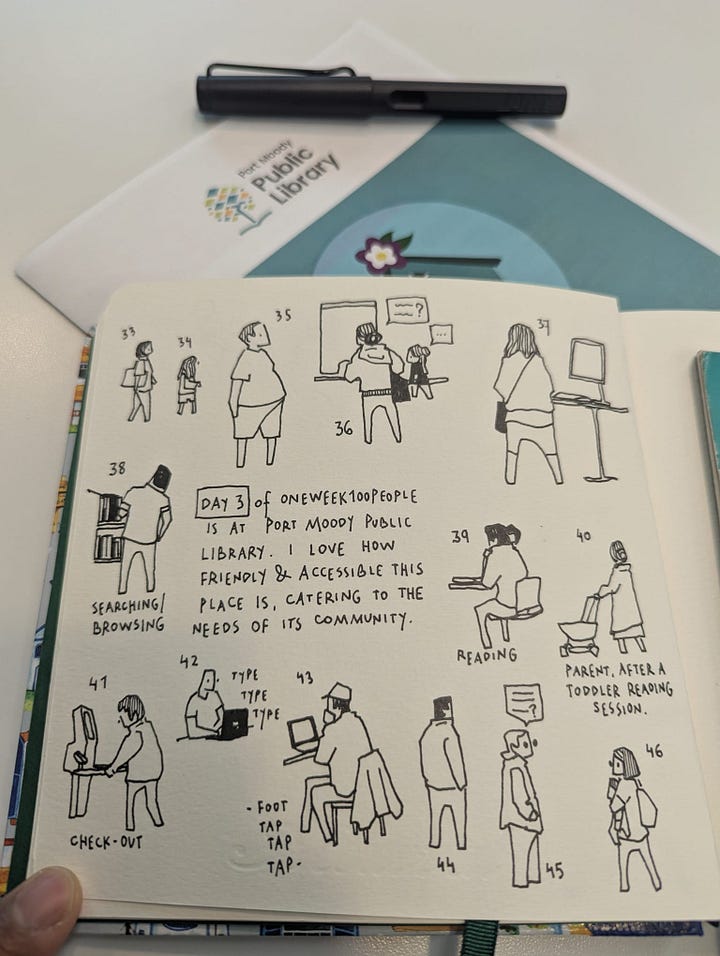 Port Moody
Public
Library
33
34
35
?
...
36
37
38
SEARCHING/
BROWSING
DAY 3 of ONEWEEK100PEOPLE
IS AT PORT MOODY PUBLIC
LIBRARY. I LOVE HOW
FRIENDLY & ACCESSIBLE THIS
PLACE IS, CATERING TO THE
NEEDS OF ITS COMMUNITY.
39
READING
40
PARENT, AFTER A
TODDLER READING
SESSION.
41
CHECK-OUT
42
TYPE
TYPE
TYPE
43
- FOOT
TAP
TAP
TAP-
44
?
45
46